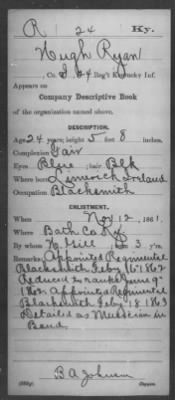 R 24 Ky.
Hugh Ryan
, Co. D, 24 Reg't Kentucky Inf.
Appears on
Company Descriptive Book
of the organization named above.
DESCRIPTION.
Age 24 years; height 5 feet 8 inches.
Complexion Fair
Eyes Blue ; hair Blk
Where born Limerick Ireland
Occupation Blacksmith
ENLISTMENT.
When Nov 12, 1861.
Where Bath Co Ky
By whom Hill ; term 3 y'rs.
Remarks: Appointed Regimental
Blacksmith Feby 1862
Reduced to ranks June 9"
1862 Appointed Regimental
Blacksmith Feby 18 1863
Detailed as Musician in
Band
B A Johnson
Copyist.